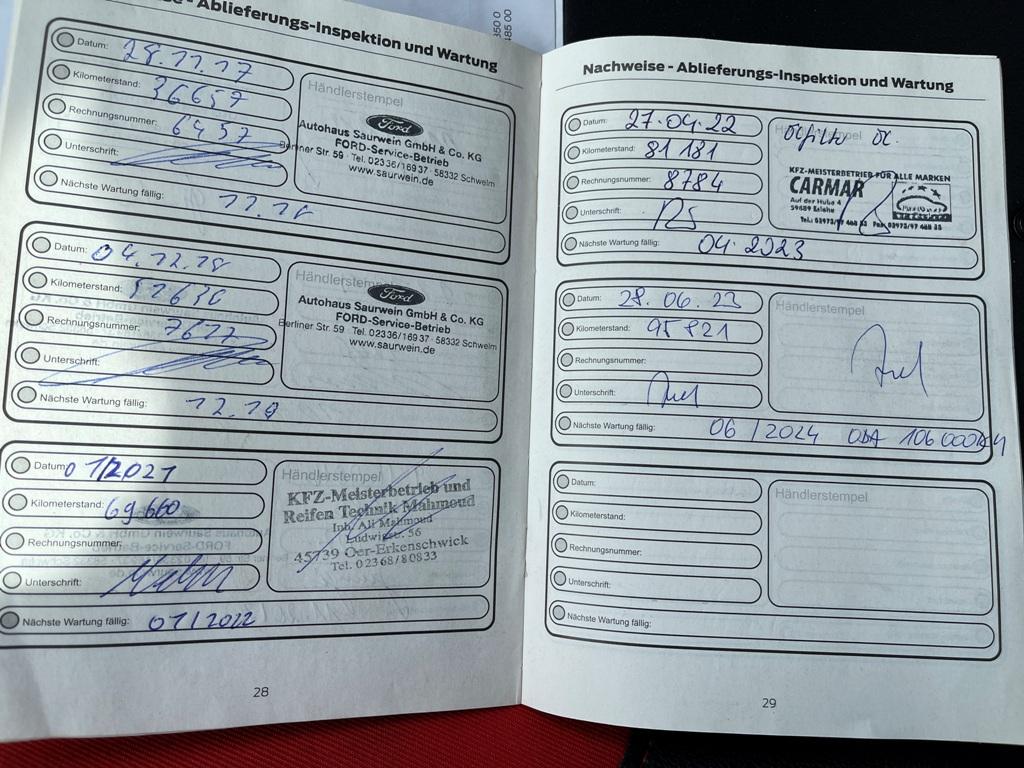 350 0
485 00
e - Ablieferungs-Inspektion und Wartung
Datum: 28.11.17
Kilometerstand: 36657
Rechnungsnummer: 6457
Unterschrift:
Nächste Wartung fällig: 11.18
Händlerstempel
Ford
Autohaus Saurwein GmbH & Co. KG
FORD-Service-Betrieb
Berliner Str. 59 · Tel. 02336/16937 · 58332 Schwelm
www.saurwein.de
Datum: 04.12.18
Kilometerstand: 52636
Rechnungsnummer: 7677
Unterschrift:
Nächste Wartung fällig: 12.19
Händlerstempel
Ford
Autohaus Saurwein GmbH & Co. KG
FORD-Service-Betrieb
Berliner Str. 59 · Tel. 02336/16937 · 58332 Schwelm
www.saurwein.de
Datum: 01/2021
Kilometerstand: 69.660
Rechnungsnummer:
Unterschrift:
Nächste Wartung fällig: 01/2022
Händlerstempel
KFZ-Meisterbetrieb und
Reifen Technik Mahmoud
Inh. Ali Mahmoud
Ludwigstr. 56
45739 Oer-Erkenschwick
Tel. 02368/80833
28
Nachweise - Ablieferungs-Inspektion und Wartung
Datum: 27.04.22
Kilometerstand: 81 181
Rechnungsnummer: 8784
Unterschrift:
Nächste Wartung fällig: 04.2023
Händlerstempel
KFZ-MEISTERBETRIEB FÜR ALLE MARKEN
CARMAR
Auf der Hube 4
59889 Eslohe
Tel.: 02973/97 468 33 Fax: 02973/97 468 35
Datum: 28.06.23
Kilometerstand: 95821
Rechnungsnummer:
Unterschrift:
Nächste Wartung fällig: 06/2024 ODA 106000KM
Händlerstempel
Datum:
Kilometerstand:
Rechnungsnummer:
Unterschrift:
Nächste Wartung fällig:
Händlerstempel
29